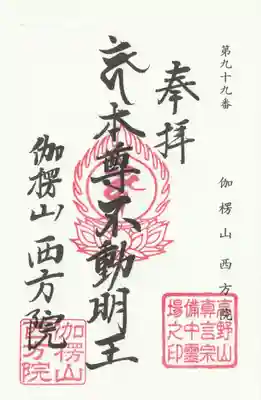 第九十九番
伽楞山 西方院
奉拝
本尊不動明王
伽楞山 西方院
高野山
真言宗
備中霊
場之印
伽楞山
西方院